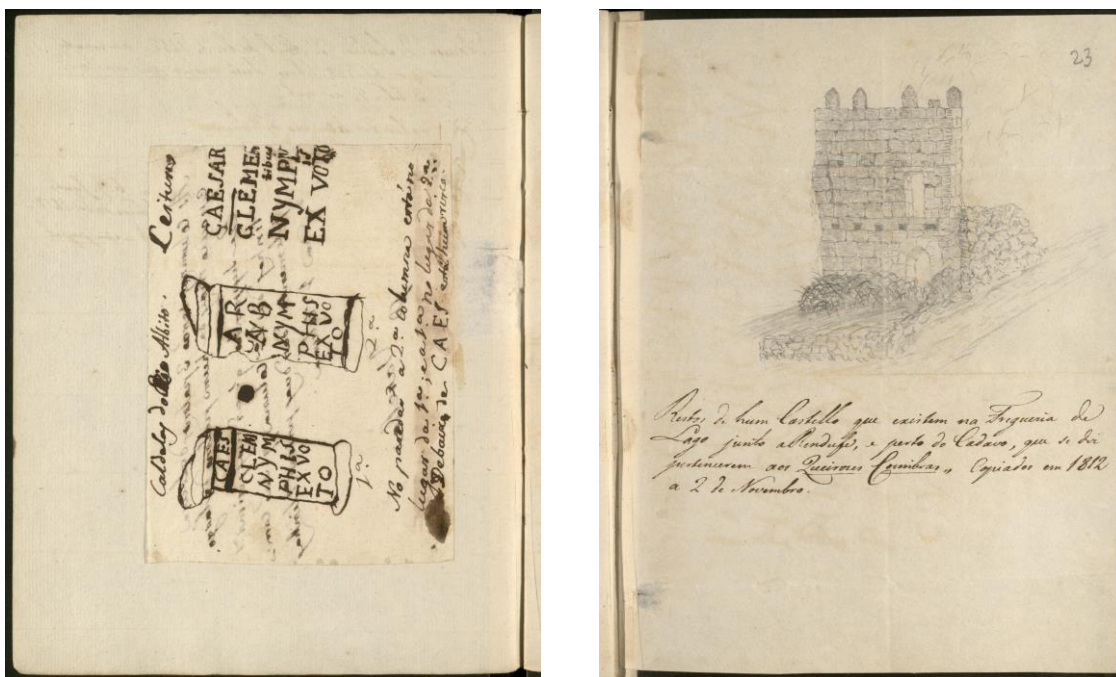 Caldas do Rio Albito. Leitura
CAES
CLEM
NYM
PHIS
EX VO
TO
1.ª
AR
NYM
PHIS
EX VO
TO
2.ª
CAESAR
CLEMEN
tibus
NYMP
EX VOTO
No paredão a 2.ª columna está no
lugar da 1.ª; e esta no lugar da 2.ª
Debaixo de CAES está hum
23
Restos de hum Castello que existem na Freguezia de
Lago junto a Rendufe, e perto do Cadavo, que se diz
pertencerem aos Coimbras,, Copiados em 1812
a 2 de Novembro.